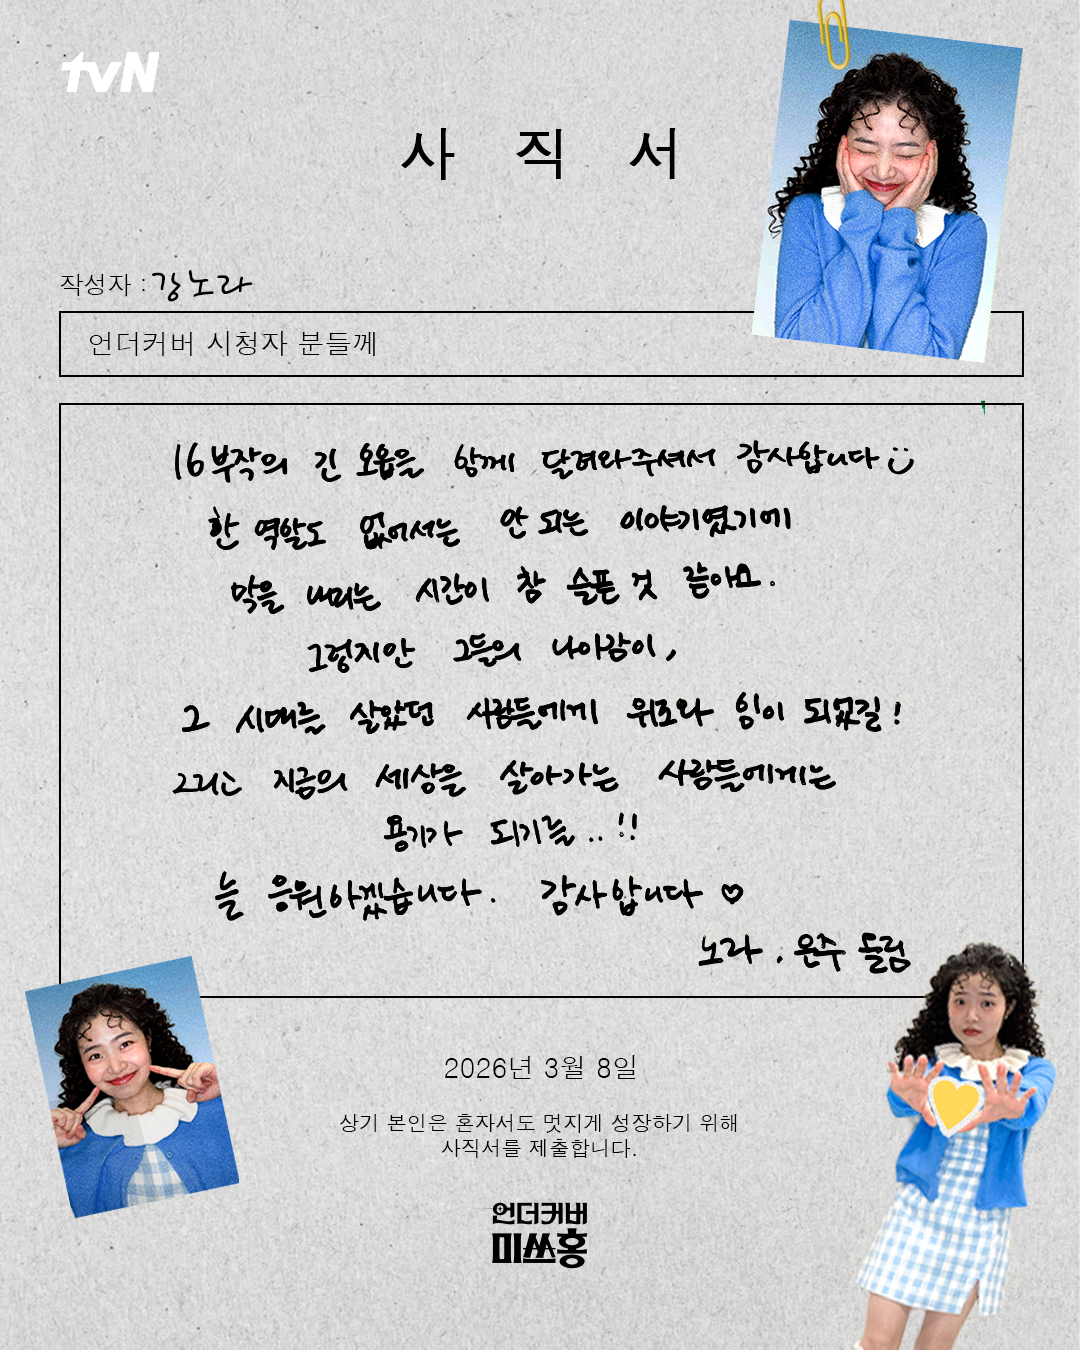 tvN
사 직 서
작성자 : 강노라
언더커버 시청자 분들께
16부작의 긴 호흡을 함께 달려와주셔서 감사합니다
한 역할도 없어서는 안 되는 이야기였기에
막을 내리는 시간이 참 슬픈 것 같아요.
그렇지만 그들의 나아감이,
그 시대를 살았던 사람들에게 위로와 힘이 되었길!
그리고 지금의 세상을 살아가는 사람들에게는
용기가 되기를..!!
늘 응원하겠습니다. 감사합니다 ♡
노라, 은주 드림
2026년 3월 8일
상기 본인은 혼자서도 멋지게 성장하기 위해
사직서를 제출합니다.
언더커버
미쓰홍